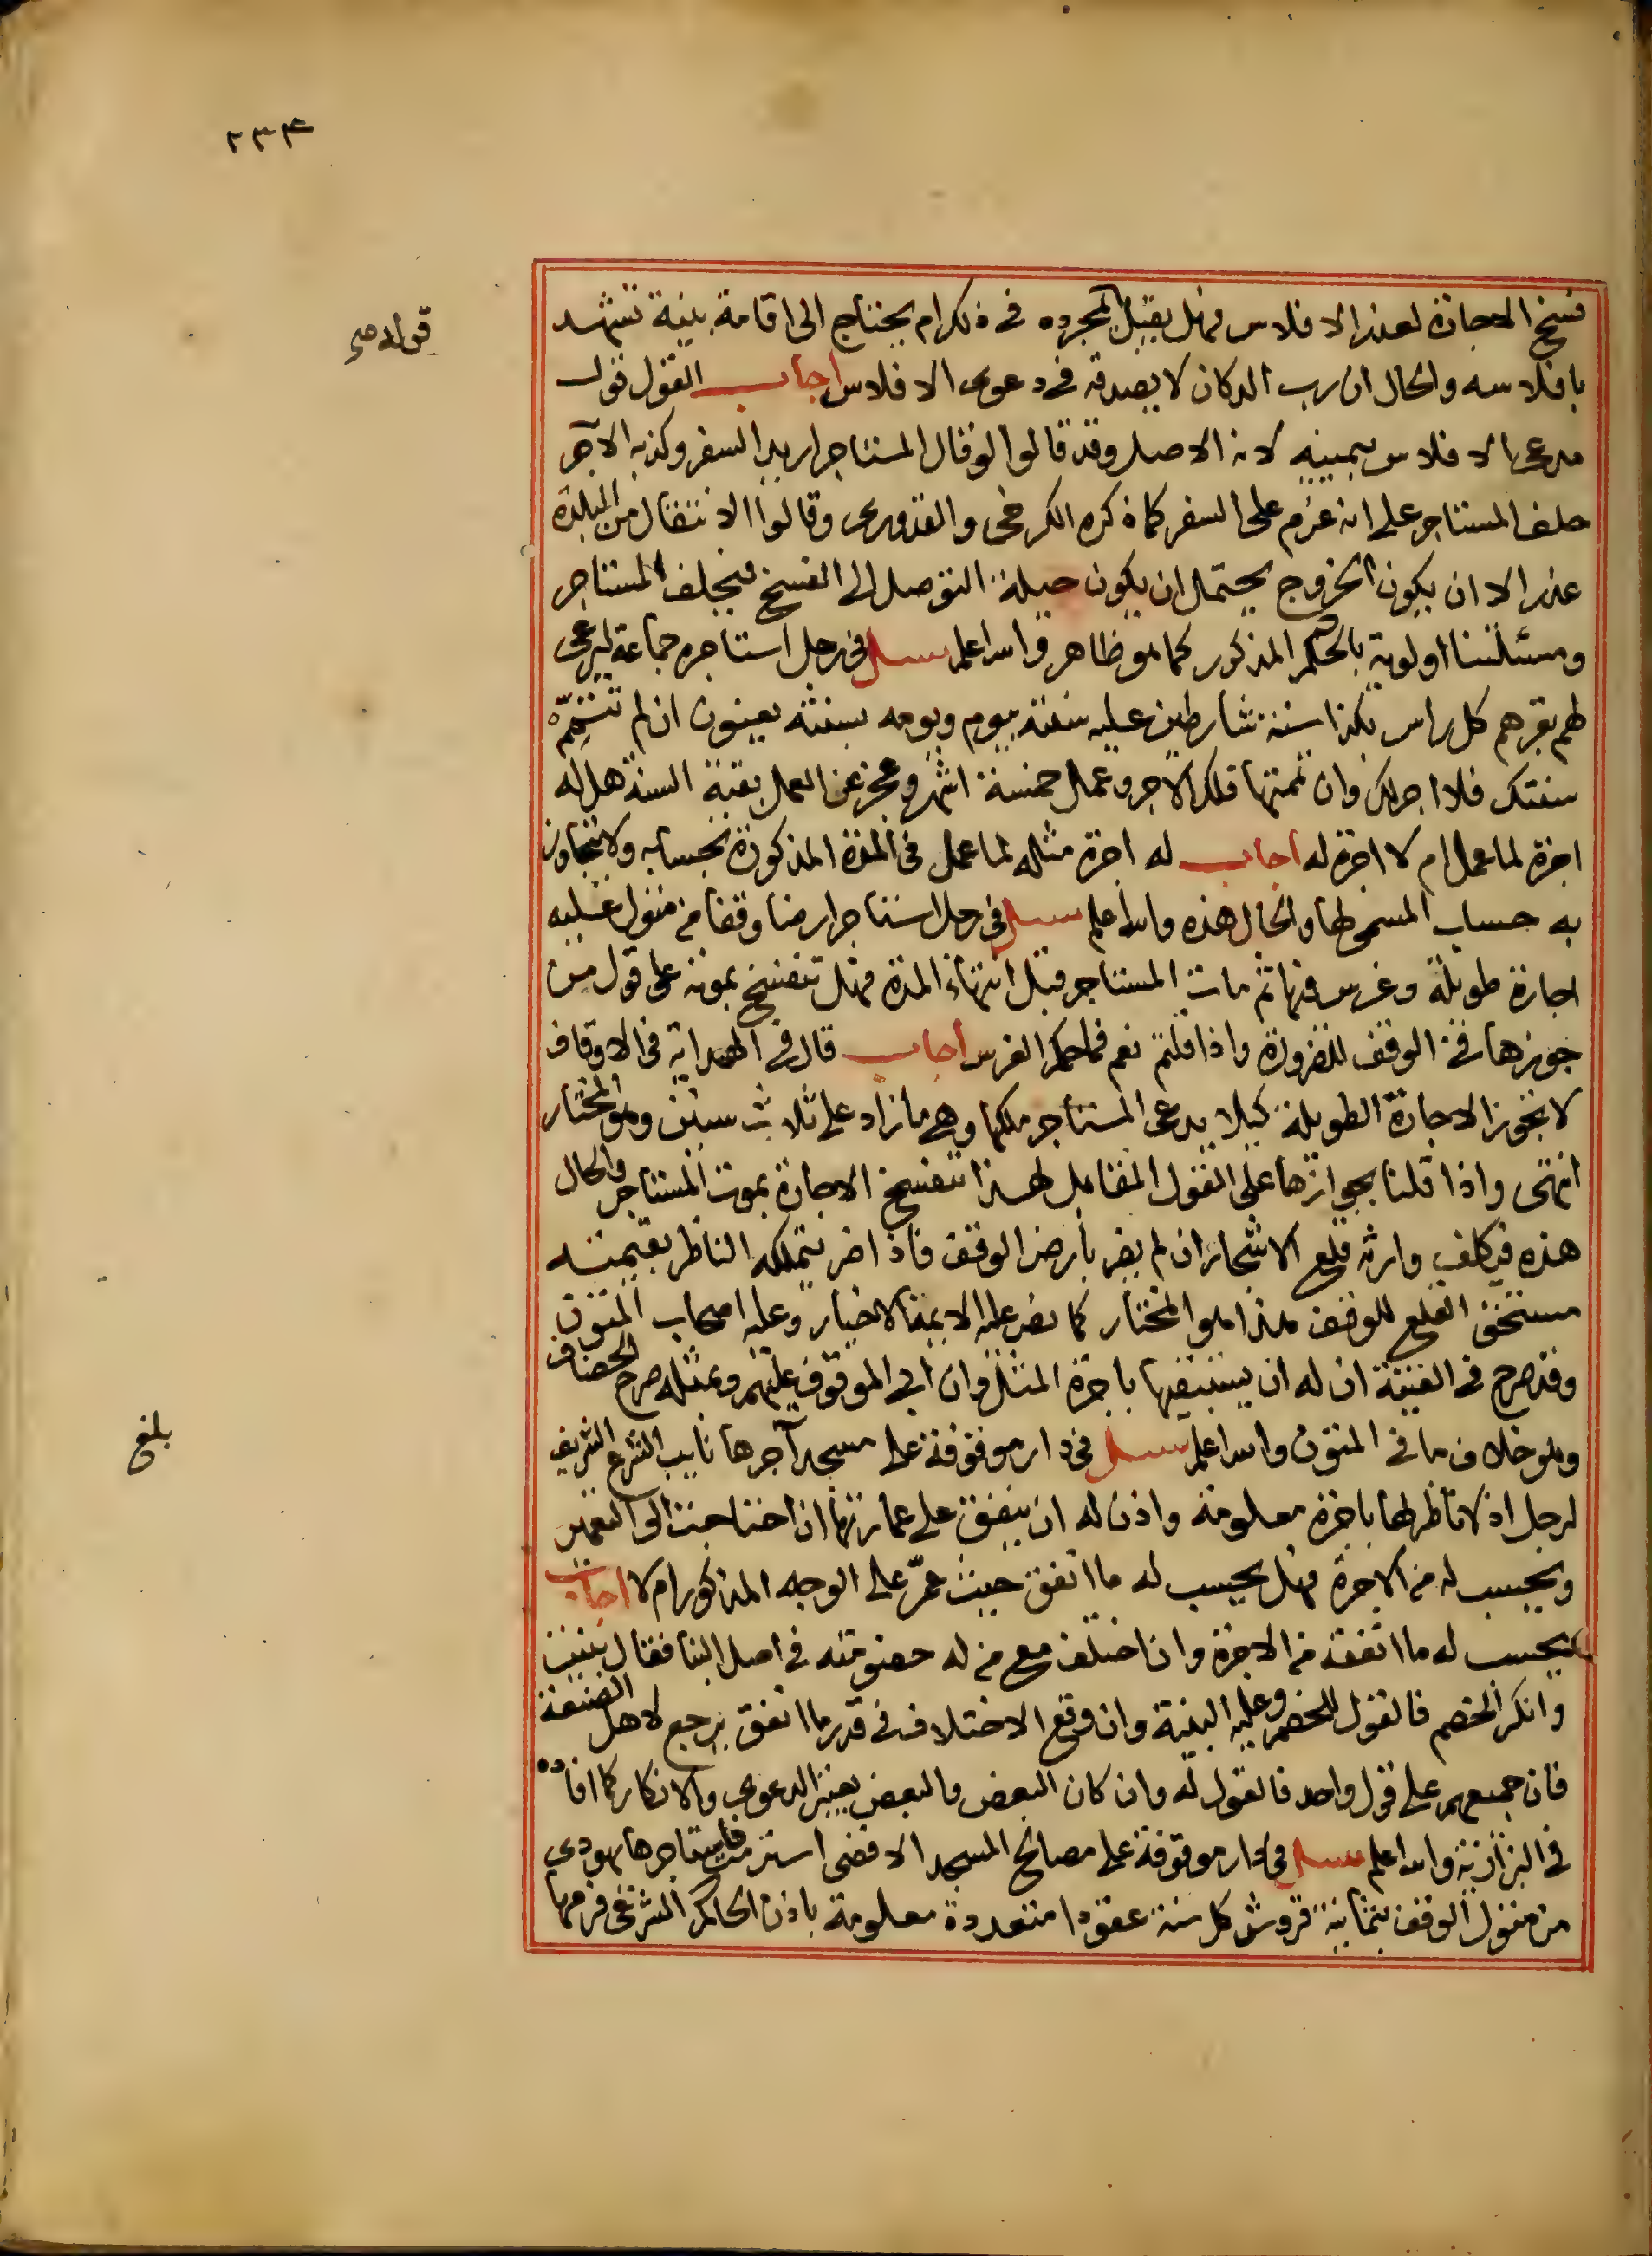 ٢٣٤
فسخ الاجارة لعذر الافلاس فهل يقبل لمجرده في ذلك ام يحتاج الى اقامة بينة تشهد
قوله
بافلاسه والحال ان رب الدكان لا يصدقه في دعوى الافلاس اجاب القول قول
مدعي الافلاس بيمينه لانه الاصل وقد قالوا لو قال المستاجر اريد السفر وكذبه الآجر
حلف المستاجر على انه عزم على السفر كما ذكره الكرخي والقدوري وقالوا الانتقال من البلدة
عذر الا ان يكون الخروج يحتمل ان يكون حيلة التوصل الى الفسخ فيحلف المستاجر
ومسئلتنا اولوية بالحكم المذكور كما هو ظاهر والله اعلم سئل في رجل استاجره جماعة ليرعى
لهم بقرهم كل راس بكذا سنة شارطين عليه سنته بيوم ويومه بسنته يعنون ان لم تتمه
سنتك فلا اجر لك وان تممتها فلك الاجر وعمل خمسة اشهر وعجز عن العمل بقية السنة هل له
اجرة لما عمل ام لا اجرة له اجاب له اجرة مثله لما عمل في المدة المذكورة بحسابه ولا يتجاوز
به حساب المسمى لها والحال هذه والله اعلم سئل في رجل استاجر ارضا وقفا من متول عليه
اجارة طويلة وغرس فيها ثم مات المستاجر قبل انتهاء المدة فهل تنفسخ بموته على قول من
جوزها في الوقف للضرورة واذا قلتم نعم فما حكم الغرس اجاب قال في الهداية في الاوقاف
لا تجوز الاجارة الطويلة كيلا يدعى المستاجر ملكها وهي ما زاد على ثلاث سنين وهو المختار
انتهى واذا قلنا بجوازها على القول المقابل لهذا تنفسخ الاجارة بموت المستاجر والحال
هذه فيكلف وارثه قلع الاشجار ان لم يضر بارض الوقف فاذا ضر يتملكه الناظر بقيمته
مستحق القلع للوقف هذا هو المختار كما نص عليه الايمة الاخيار وعليه اصحاب المتون
وقد صرح في القنية ان له ان يستبقيها باجرة المثل وان ابى الموقوف عليهم وبمثله صرح الخصاف
وهو خلاف ما في المتون والله اعلم سئل في دار موقوفة على مسجد آجرها نايب الشرع الشريف
بلغ
لرجل اذ لا ناظر لها باجرة معلومة واذن له ان ينفق على عمارتها ان احتاجت الى التعمير
ويحسب له من الاجرة فهل يحسب له ما انفق حيث عمّر على الوجه المذكور ام لا اجاب
يحسب له ما انفقه من الاجرة وان اختلف مع من له خصومته في اصل البنا فقال بنيت
وانكر الخصم فالقول للخصم وعليه البينة وان وقع الاختلاف في قدر ما انفق يرجع لاهل الصنعة
فان جميعهم على قول واحد فالقول له وان كان البعض والبعض يعتبر الدعوى والانكار كما افاده
في البزازية والله اعلم سئل في دار موقوفة على مصالح المسجد الاقصى استرمت فاستاجرها يهودي
من متول الوقف بثمانية قروش كل سنة عقودا متعددة معلومة باذن الحاكم الشرعي فرمها